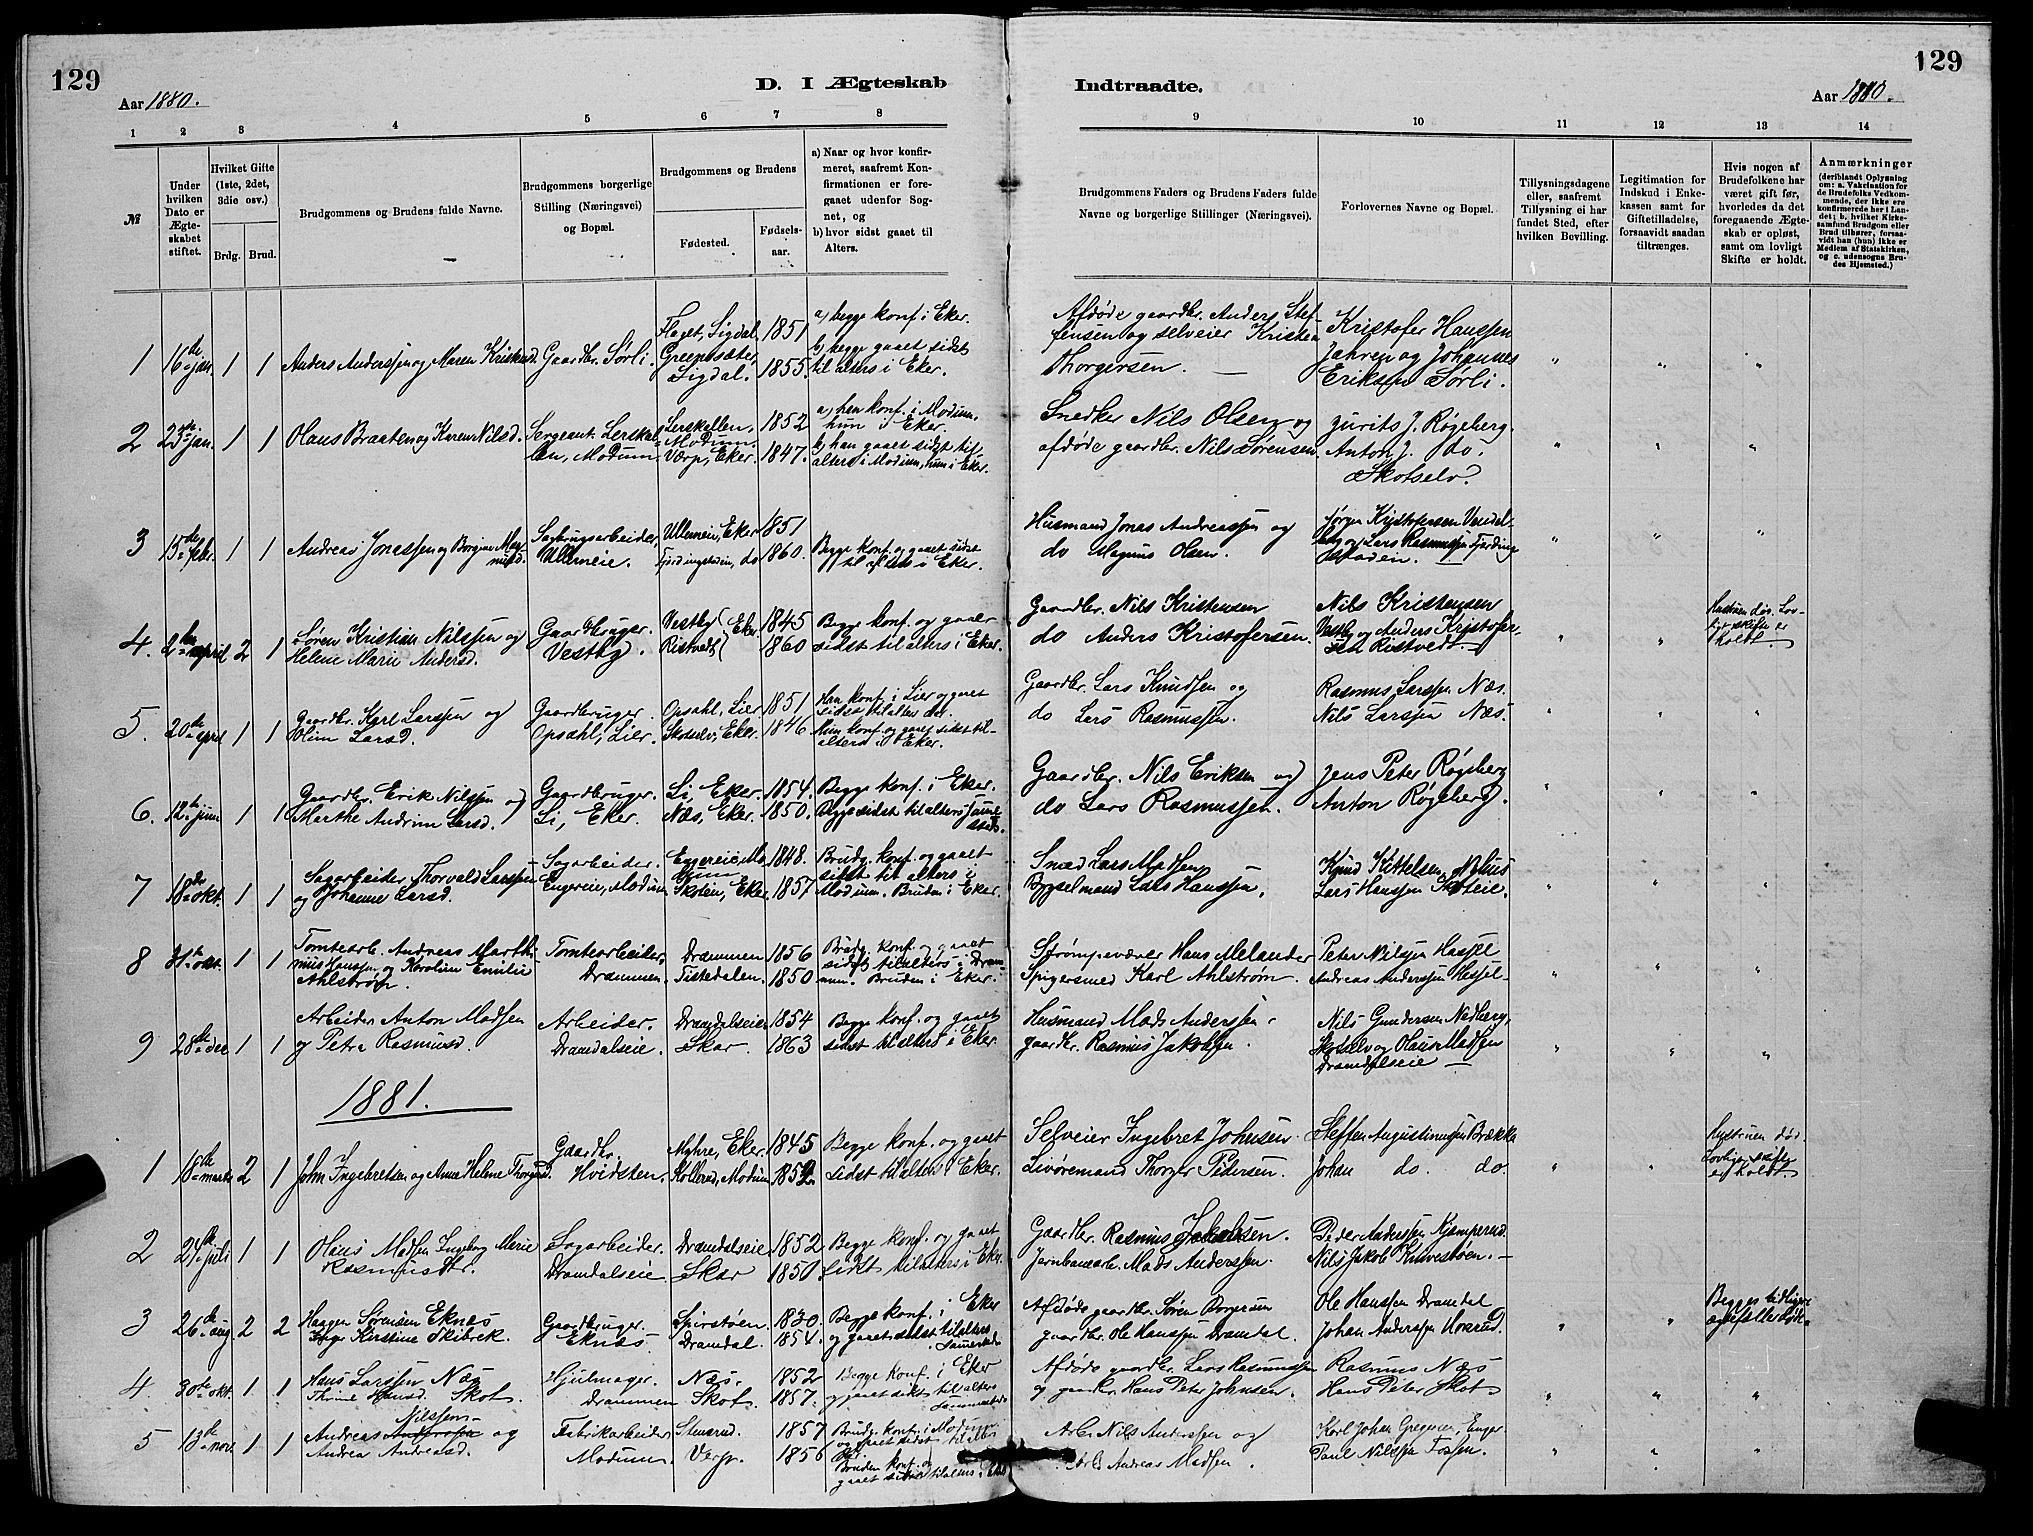 129
D. I Ægteskab
Indtraadte.
129
Aar 1880.
Aar 1880.
1 2 3 4 5 6 7 8 9 10 11 12 13 14
№
Under hvilken Dato er Ægteskabet stiftet.
Hvilket Gifte (1ste, 2det, 3die osv.)
Brdg. Brud.
Brudgommens og Brudens fulde Navne.
Brudgommens borgerlige Stilling (Næringsvei) og Bopæl.
Brudgommens og Brudens
Fødested.
Fødselsaar.
a) Naar og hvor konfirmeret, saafremt Konfirmationen er foregaaet udenfor Sognet, og
b) hvor sidst gaaet til Alters.
Brudgommens Faders og Brudens Faders fulde Navne og borgerlige Stillinger (Næringsvei).
Forlovernes Navne og Bopæl.
Tillysningsdagene eller, saafremt Tillysning ei har fundet Sted, efter hvilken Bevilling.
Legitimation for Indskud i Enkekassen samt for Giftetilladelse, forsaavidt saadan tiltrænges.
Hvis nogen af Brudefolkene har været gift før, hvorledes da det foregaaende Ægteskab er opløst, samt om lovligt Skifte er holdt.
Anmærkninger (deriblandt Oplysning om: a. Vakcination for de Brudefolks Vedkommende, der ikke ere konfirmerede her i Landet; b. hvilket Kirkesamfund Brudgom eller Brud tilhører, forsaavidt han (hun) ikke er Medlem af Statskirken, og c. udensogns Brudes Hjemsted.)
1 16de jan. 1 1 Anders Anderssen og Maren Kristensd. Gaardbr. Sørli. Flaget, Sigdal 1851 Sigdal. 1855. a) begge konf. i Eker. b) begge gaaet sidst til alters i Eker.
Afdøde gaardbr. Anders Steffensen og selveier Kristen Thorgersen. Kristofer Hanssen Jahren og Johannes Eriksen Sørli.
2 23de jan. 1 1 Olaus Braaten og Karen Nilsd. Sergeant. Lerskallen, Modum. Lerskallen, Modum. 1852 Værp, Eker. 1847. a) han konf. i Modum, hun i Eker. b) han gaaet sidst til alters i Modum, hun i Eker.
Snedker Nils Olsen og afdøde gaardbr. Nils Sørensen. J. Røgeberg. Anton J. do. Skotselv.
3 15de febr. 1 1 Andreas Jonassen og Borgine Magnusd. Sagbrugsarbeider, Ullerneie. Ullerneie, Eker 1851 Fjerdingstaden, do 1860. Begge konf. og gaaet sidst til alters i Eker.
Husmand Jonas Andreassen og do Magnus Olsen. Jørgen Kristofersen og Lars Rasmussen Fjerdingstaden.
4. 2den april 2 1 Søren Kristian Nilssen og Helene Marie Andersd. Gaardbruger. Vestby. Vestby Ristvedt Eker. 1845 1860 Begge konf. og gaaet sidst til alters i Eker.
Gaardbr. Nils Kristensen do Anders Kristofersen. Nils Kristensen Vestby og Anders Kristofersen Ristvedt. Hustruen død. Lovlig skifte er holdt.
5. 20de april 1 1 Gaardbr. Karl Larssen og Oline Larsd. Gaardbruger. Opsahl, Lier. Opsahl, Lier 1851 Skotselv, Eker. 1846 Han konf. i Lier og gaaet sidst til alters der. Hun konf. og gaaet sidst til alters i Eker.
Gaardbr. Lars Knudsen og do Lars Rasmussen. Rasmus Larssen Næs. Nils Larssen Næs.
6. 12te juni 1 1 Gaardbr. Erik Nilssen og Marthe Andrine Larsd. Gaardbruger. Li, Eker. Li, Eker. 1854. Næs, Eker. 1850. Begge konf. i Eker. Begge sidst til alters sammesteds.
Gaardbr. Nils Eriksen og do Lars Rasmussen. Jens Peter Røgeberg Anton Røgeberg.
7 18de okt. 1 1 Sagarbeider Thorvald Larssen og Johanne Larsd. Sagarbeider. Engereie, Modum. Engereie, Modum 1848. Skoteie, Eker. 1857 Brudg. konf. og gaaet sidst til alters i Modum. Bruden i Eker.
Smed Lars Madsen Bygselmand Lars Hanssen. Knud Kittelsen Lars Hanssen Skoteie.
8 31te okt. 1 1 Tomtearb. Andreas Marthinius Hanssen og Karoline Emilie Ahlstrøm. Tomtearbeider, Drammen. Drammen 1856 Tistedalen. 1850 Brudg. konf. og gaaet sidst til alters i Drammen. Bruden i Eker.
Strømpevæver Hans Melander Spigersmed Karl Ahlstrøm. Peter Nilsen Hassel Andreas Anderssen Hassel.
9 28de dec 1 1 Arbeider Anton Madsen og Petra Rasmusd. Arbeider. Dramdalseie. Dramdalseie 1854 Skar. 1863 Begge konf. og gaaet sidst til alters i Eker
Husmand Mads Anderssen. gaardbr. Rasmus Jakobsen. Nils Gundersen Nedberg, Skotselv og Olaus Madsen Dramdalseie
1881.
1 18de marts 2 1 John Ingebretsen og Anne Helene Thorgersd. Gaardbr. Hvidsten. Myhre, Eker. 1845 Kollerud, Modum 1852 Begge konf. og gaaet sidst til alters i Eker.
Selveier Ingebret Johnsen. Livøremand Thorger Pedersen. Steffen Augustinussen Brække Johan do. do. Hustruen død. Lovlig skifte er holdt.
2 24de juli 1 1 Olaus Madsen Ingeborg Marie Rasmusdtr. Sagarbeider. Dramdalseie Dramdalseie 1852 Skar 1850 Begge konf. og gaaet sidst til alters i Eker.
Gaardbr. Rasmus Jakobsen. Jernbanearb. Mads Anderssen. Peder Anderssen Kjemperud. Nils Jakob
3 26de aug 2 2 Haagen Sørensen Eknæs Kirstine Skibrek. Gaardbruger. Eknæs Spirstøen. 1830 Dramdal. 1854. Begge konf. i Eker og gaaet sidst til alters sammesteds
Afdøde gaardbr. Søren gaardbr. Ole Hanssen Dramdal. Ole Hanssen Dramdal Johan Anderssen Horrud. Begges tidligere ægtefæller døde.
4. 30te okt. 1 1 Hans Larssen Næs Hansd. Skot. Hjulmager. Drammen Næs. 1852 Skot. 1857. Begge konf. i Eker og gaaet sidst til alters sammesteds
Afdøde gaardbr. Lars Rasmussen og gaardbr. Hans Peter Johnsen. Rasmus Næs Hans Peter Skot
5 13de nov. 1 1 Andreas Nilssen og Andrea Andreasd. Fabrikarbeider Modum. Stensrud. 1857 Verp. 1856 Brudg. konf. i Modum og gaaet sidst til alters der. Bruden konf. og gaaet sidst til alters i Eker
Arb. Nils Anderssen og Arb. Andreas Madsen. Karl Johan Gregersen, Enger Paul Nilssen Fossen.